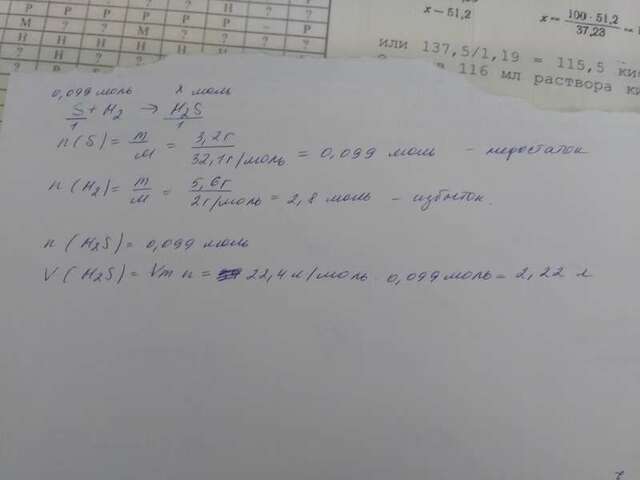 Р Р Р Н Н ?
Р М Р ? ? –
Н Н М Р – Р
Н Н ? Н ?
x – 51,2
x = 100 · 51,2 / 37,23 =
или 137,5/1,19 = 115,5
116 мл раствора
0,099 моль x моль
S + H2 → H2S
1 1
n(S) = m/M = 3,2г / 32,1г/моль = 0,099 моль – недостаток
n(H2) = m/M = 5,6г / 2г/моль = 2,8 моль – избыток.
n(H2S) = 0,099 моль
V(H2S) = Vm n = 22,4 л/моль · 0,099 моль = 2,22 л